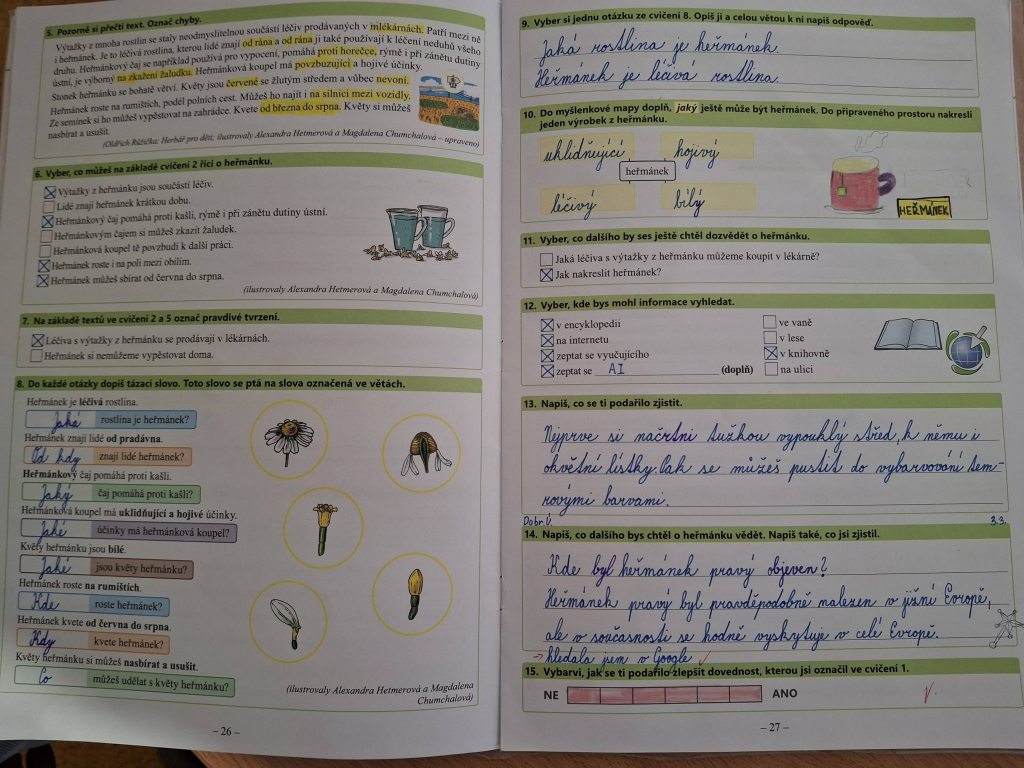 5. Pozorně si přečti text. Označ chyby.
Výtažky z mnoha rostlin se staly neodmyslitelnou součástí léčiv prodávaných v mlékárnách. Patří mezi ně
i heřmánek. Je to léčivá rostlina, kterou lidé znají od rána a od rána ji také používají k léčení neduhů všeho
druhu. Heřmánkový čaj se například používá pro vypocení, pomáhá proti horečce, rýmě i při zánětu dutiny
ústní, je výborný na zkažení žaludku. Heřmánková koupel má povzbuzující a hojivé účinky.
Stonek heřmánku se bohatě větví. Květy jsou červené se žlutým středem a vůbec nevoní.
Heřmánek roste na rumištích, podél polních cest. Můžeš ho najít i na silnici mezi vozidly.
Ze semínek si ho můžeš vypěstovat na zahrádce. Kvete od března do srpna. Květy si můžeš
nasbírat a usušit.
(Oldřich Růžička: Herbář pro děti; ilustrovaly Alexandra Hetmerová a Magdalena Chumchalová – upraveno)
6. Vyber, co můžeš na základě cvičení 2 říci o heřmánku.
Výtažky z heřmánku jsou součástí léčiv.
Lidé znají heřmánek krátkou dobu.
Heřmánkový čaj pomáhá proti kašli, rýmě i při zánětu dutiny ústní.
Heřmánkovým čajem si můžeš zkazit žaludek.
Heřmánková koupel tě povzbudí k další práci.
Heřmánek roste i na poli mezi obilím.
Heřmánek můžeš sbírat od června do srpna.
(ilustrovaly Alexandra Hetmerová a Magdalena Chumchalová)
7. Na základě textů ve cvičení 2 a 5 označ pravdivé tvrzení.
Léčiva s výtažky z heřmánku se prodávají v lékárnách.
Heřmánek si nemůžeme vypěstovat doma.
8. Do každé otázky dopiš tázací slovo. Toto slovo se ptá na slova označená ve větách.
Heřmánek je léčivá rostlina.
Jaká rostlina je heřmánek?
Heřmánek znají lidé od pradávna.
Od kdy znají lidé heřmánek?
Heřmánkový čaj pomáhá proti kašli.
Jaký čaj pomáhá proti kašli?
Heřmánková koupel má uklidňující a hojivé účinky.
Jaké účinky má heřmánková koupel?
Květy heřmánku jsou bílé.
Jaké jsou květy heřmánku?
Heřmánek roste na rumištích.
Kde roste heřmánek?
Heřmánek kvete od června do srpna.
Kdy kvete heřmánek?
Květy heřmánku si můžeš nasbírat a usušit.
Co můžeš udělat s květy heřmánku?
(ilustrovaly Alexandra Hetmerová a Magdalena
Chumchalová)
– 26 –
9. Vyber si jednu otázku ze cvičení 8. Opiš ji a celou větou k ní napiš odpověď.
Jaká rostlina je heřmánek.
Heřmánek je léčivá rostlina.
10. Do myšlenkové mapy doplň, jaký ještě může být heřmánek. Do připraveného prostoru nakresli
jeden výrobek z heřmánku.
uklidňující hojivý
heřmánek
léčivý bílý
HEŘMÁNEK
11. Vyber, co dalšího by ses ještě chtěl dozvědět o heřmánku.
Jaká léčiva s výtažky z heřmánku můžeme koupit v lékárně?
Jak nakreslit heřmánek?
12. Vyber, kde bys mohl informace vyhledat.
v encyklopedii
na internetu
zeptat se vyučujícího
zeptat se AI (doplň)
ve vaně
v lese
v knihovně
na ulici
13. Napiš, co se ti podařilo zjistit.
Nejprve si načrtni tužkou vypouklý střed, k němu i
okvětní lístky. Pak se můžeš pustit do vybarvování tem-
rovými barvami.
Dobr.Ú. 3.3.
14. Napiš, co dalšího bys chtěl o heřmánku vědět. Napiš také, co jsi zjistil.
Kde byl heřmánek pravý objeven?
Heřmánek pravý byl pravděpodobně nalezen v jižní Evropě,
ale v současnosti se hodně vyskytuje v celé Evropě.
→ hledala jsem v Google
15. Vybarvi, jak se ti podařilo zlepšit dovednost, kterou jsi označil ve cvičení 1.
NE ANO
– 27 –